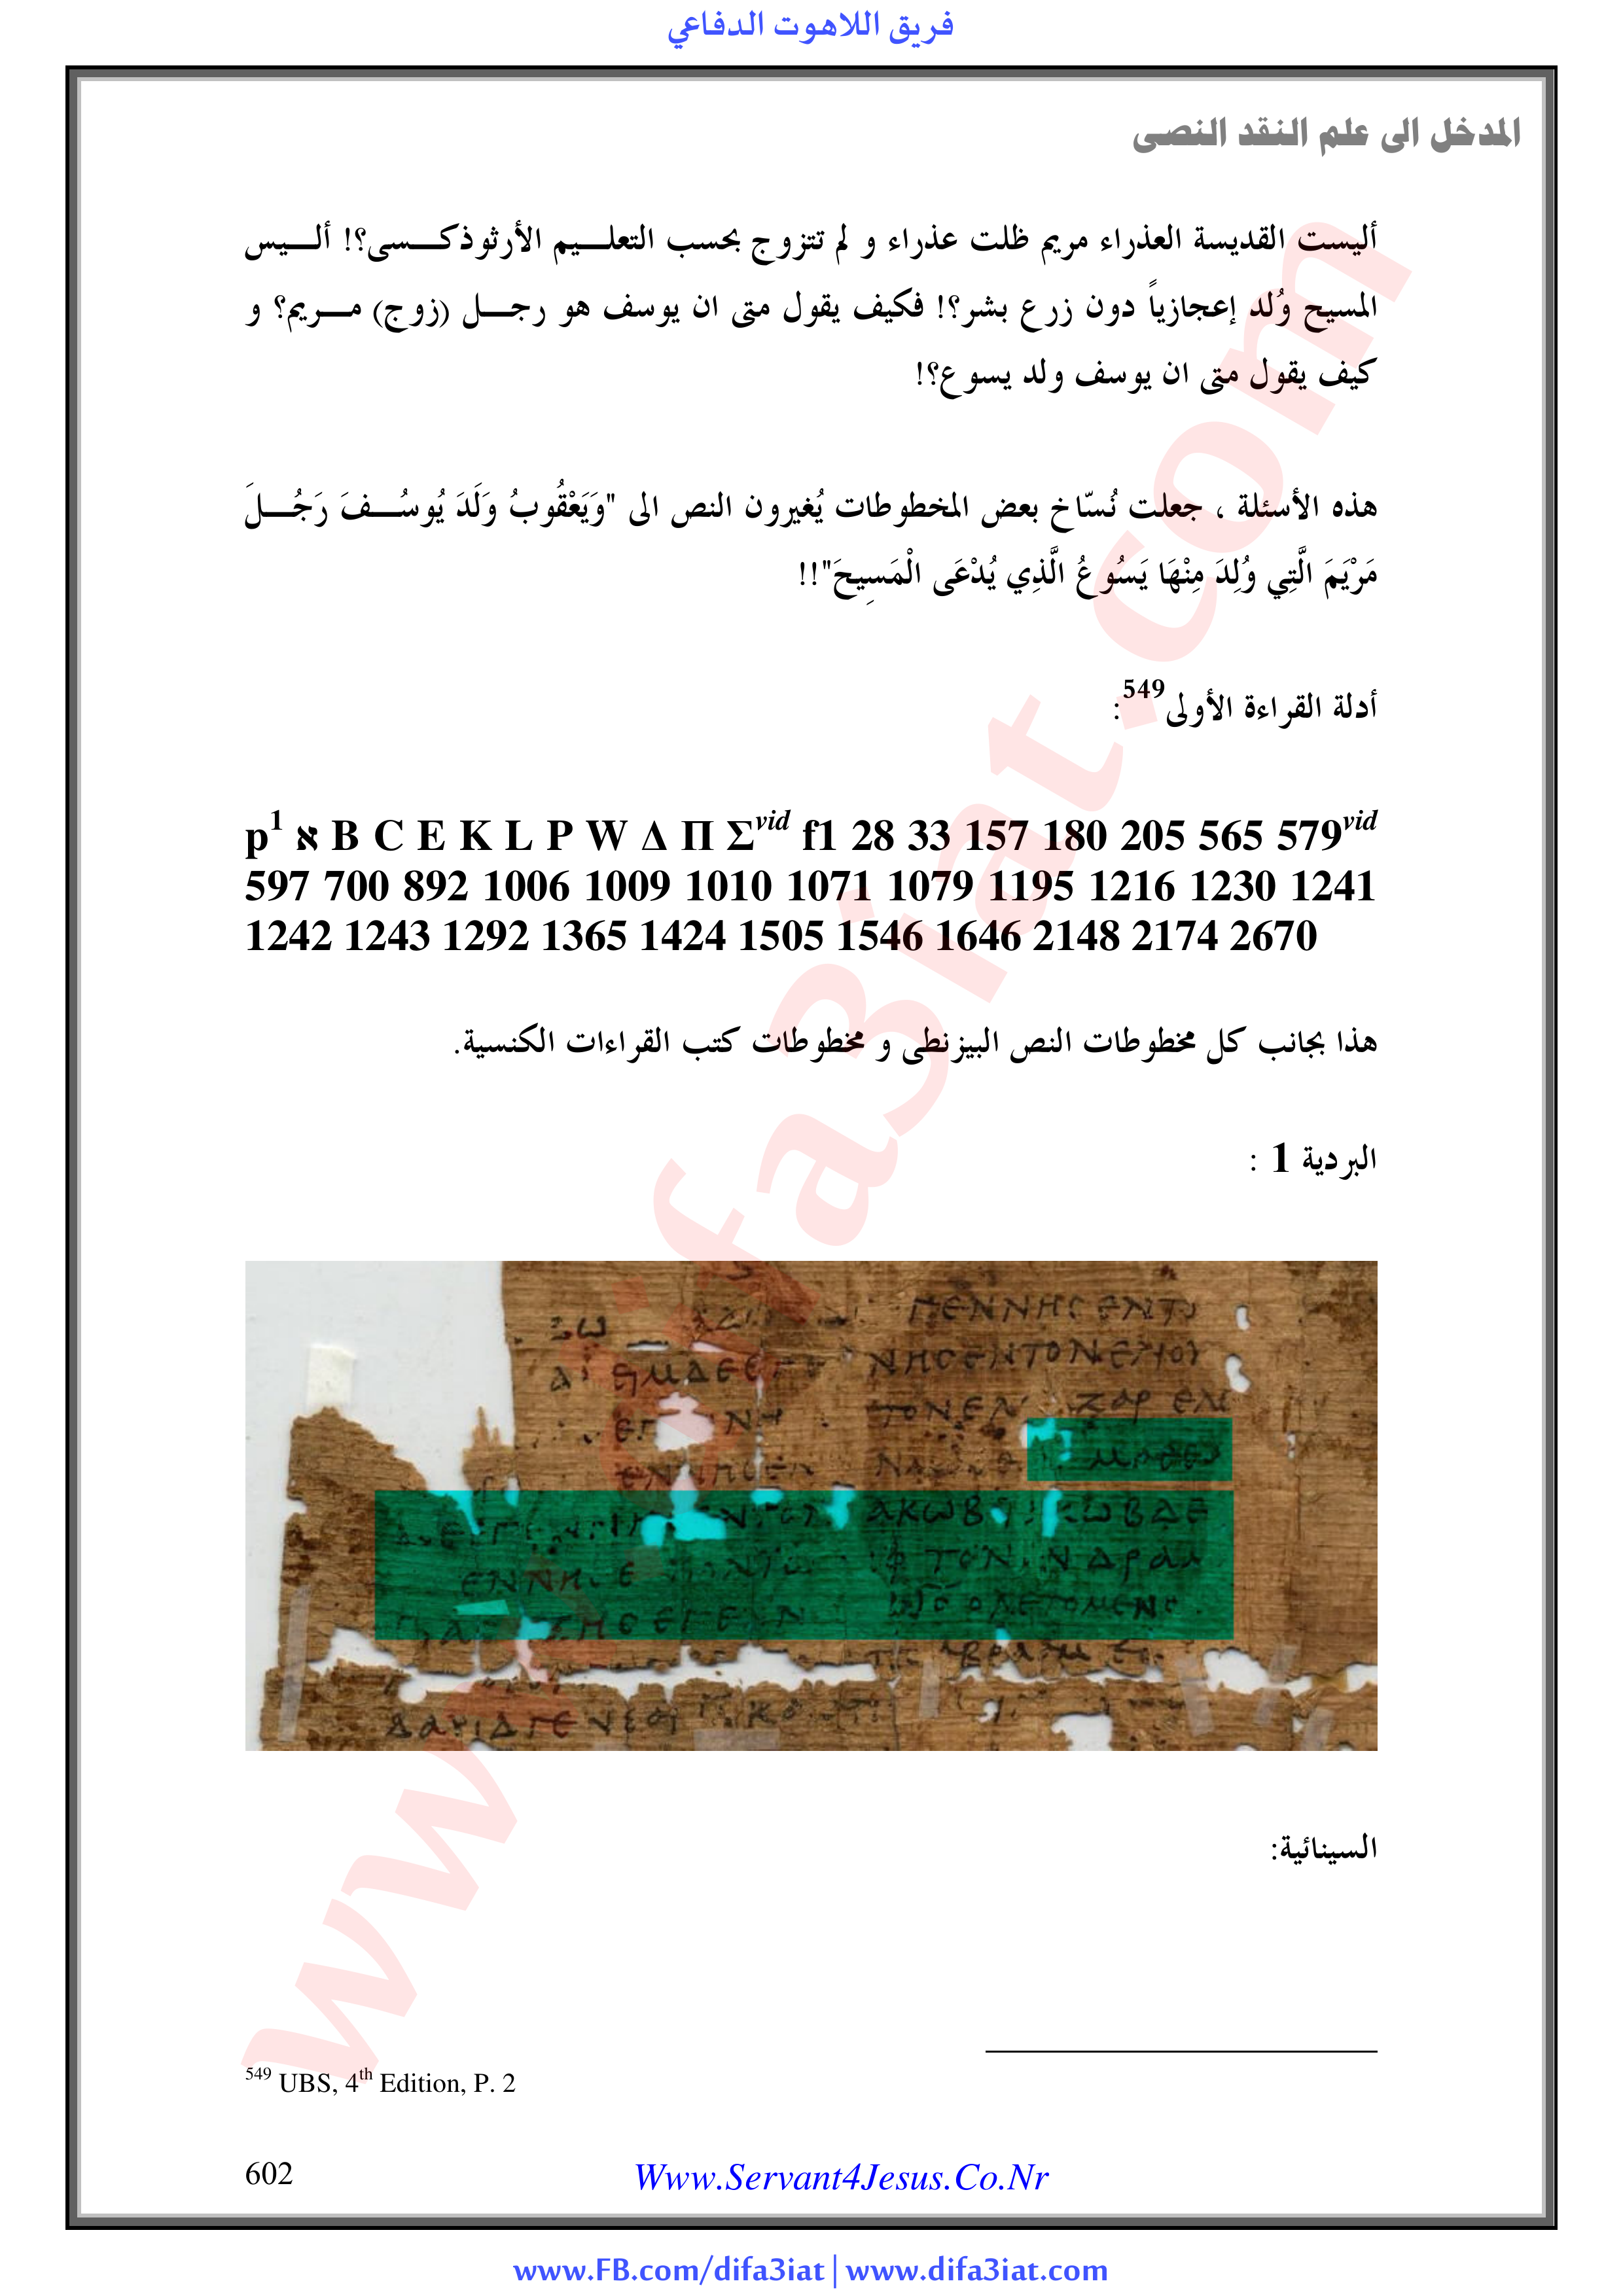 فريق اللاهوت الدفاعي
المدخل الى علم النقد النصى
أليست القديسة العذراء مريم ظلت عذراء و لم تتزوج بحسب التعليم الأرثوذكسى؟! أليس
المسيح وُلد إعجازياً دون زرع بشر؟! فكيف يقول متى ان يوسف هو رجل (زوج) مريم؟ و
كيف يقول متى ان يوسف ولد يسوع؟!
هذه الأسئلة ، جعلت نُسّاخ بعض المخطوطات يُغيرون النص الى "وَيَعْقُوبُ وَلَدَ يُوسُفَ رَجُلَ
مَرْيَمَ الَّتِي وُلِدَ مِنْهَا يَسُوعُ الَّذِي يُدْعَى الْمَسِيحَ"!!
أدلة القراءة الأولى549:
p1 א B C E K L P W Δ Π Σvid f1 28 33 157 180 205 565 579vid
597 700 892 1006 1009 1010 1071 1079 1195 1216 1230 1241
1242 1243 1292 1365 1424 1505 1546 1646 2148 2174 2670
هذا بجانب كل مخطوطات النص البيزنطى و مخطوطات كتب القراءات الكنسية.
البردية 1 :
السينائية:
549 UBS, 4th Edition, P. 2
602
Www.Servant4Jesus.Co.Nr
www.FB.com/difa3iat | www.difa3iat.com
www.difa3iat.com